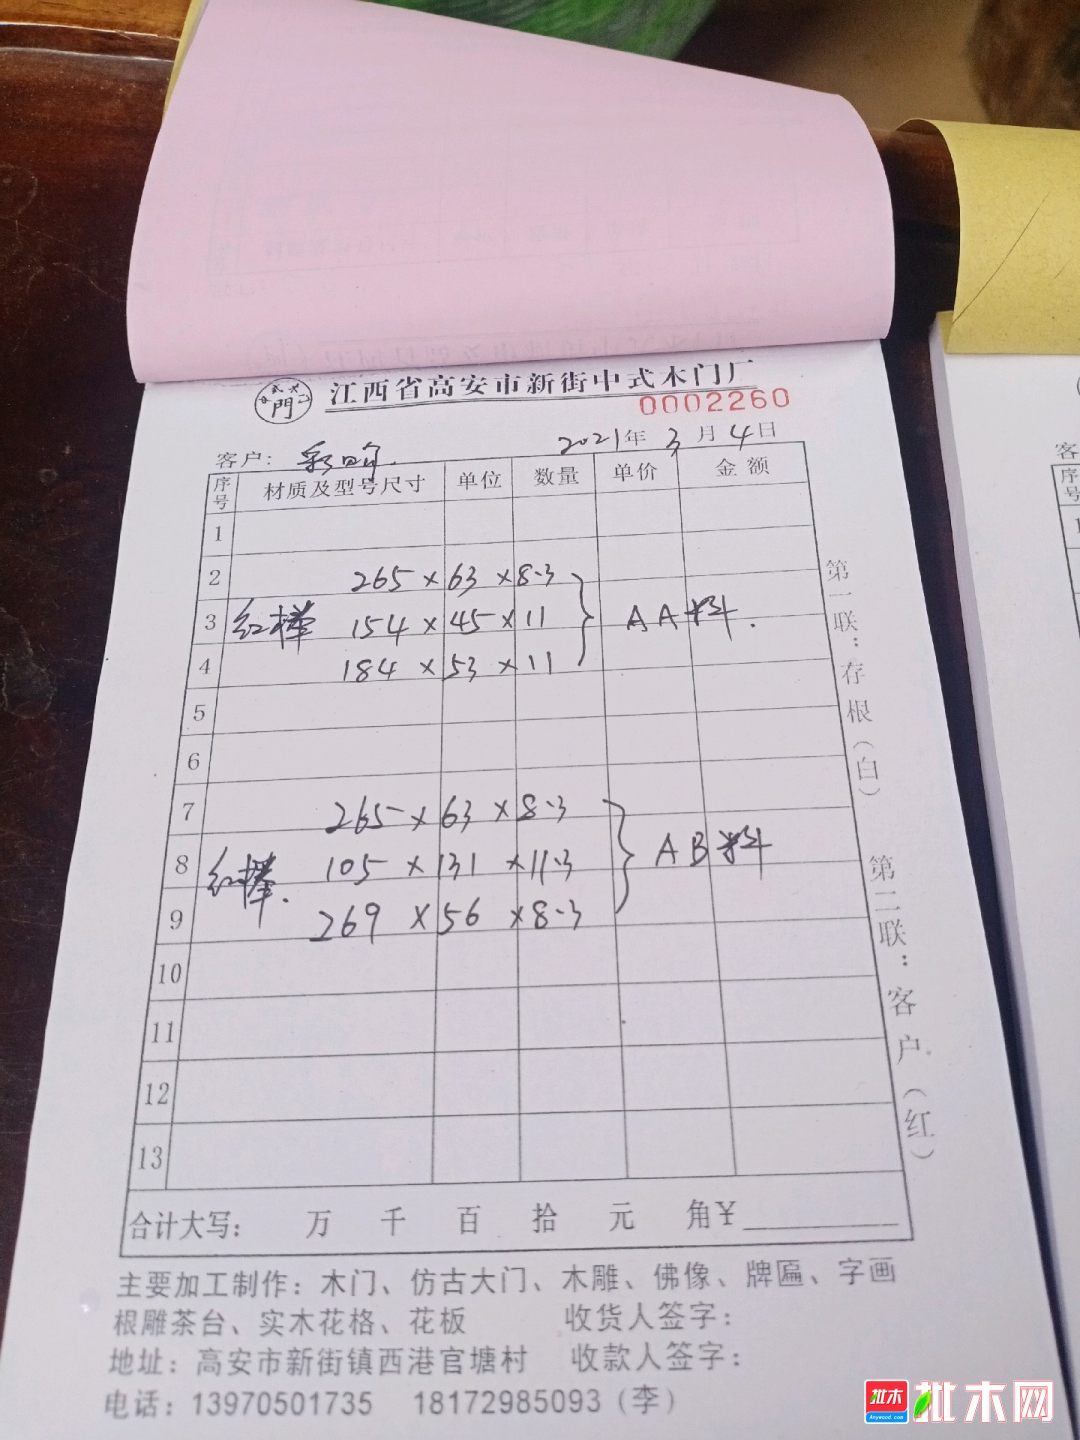 門 江西省高安市新街中式木门厂
0002260
客户： 2021年 3月 4日
序号 材质及型号尺寸 单位 数量 单价 金额
1
2 265 × 63 × 8.3
3 红榉 154 × 45 × 11 AA料.
4 184 × 53 × 11
5
6
7 265 × 63 × 8.3
8 红榉. 105 × 131 × 11.3 AB料
9 269 × 56 × 8.3
10
11
12
13
合计大写： 万 千 百 拾 元 角¥
第一联：存根（白） 第二联：客户（红）
主要加工制作：木门、仿古大门、木雕、佛像、牌匾、字画
根雕茶台、实木花格、花板 收货人签字：
地址：高安市新街镇西港官塘村 收款人签字：
电话：13970501735 18172985093（李）
客
序号
批木 批木网
Anywood.com